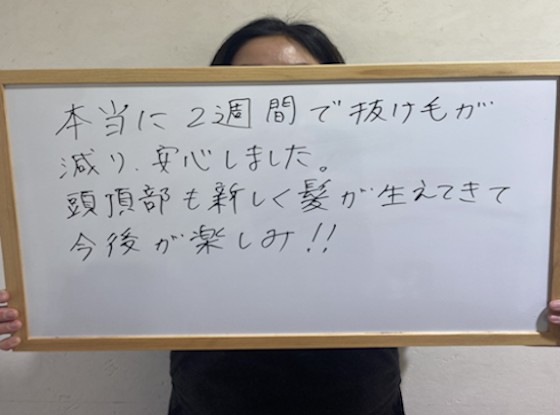 本当に2週間で抜け毛が
減り、安心しました。
頭頂部も新しく髪が生えてきて
今後が楽しみ!!